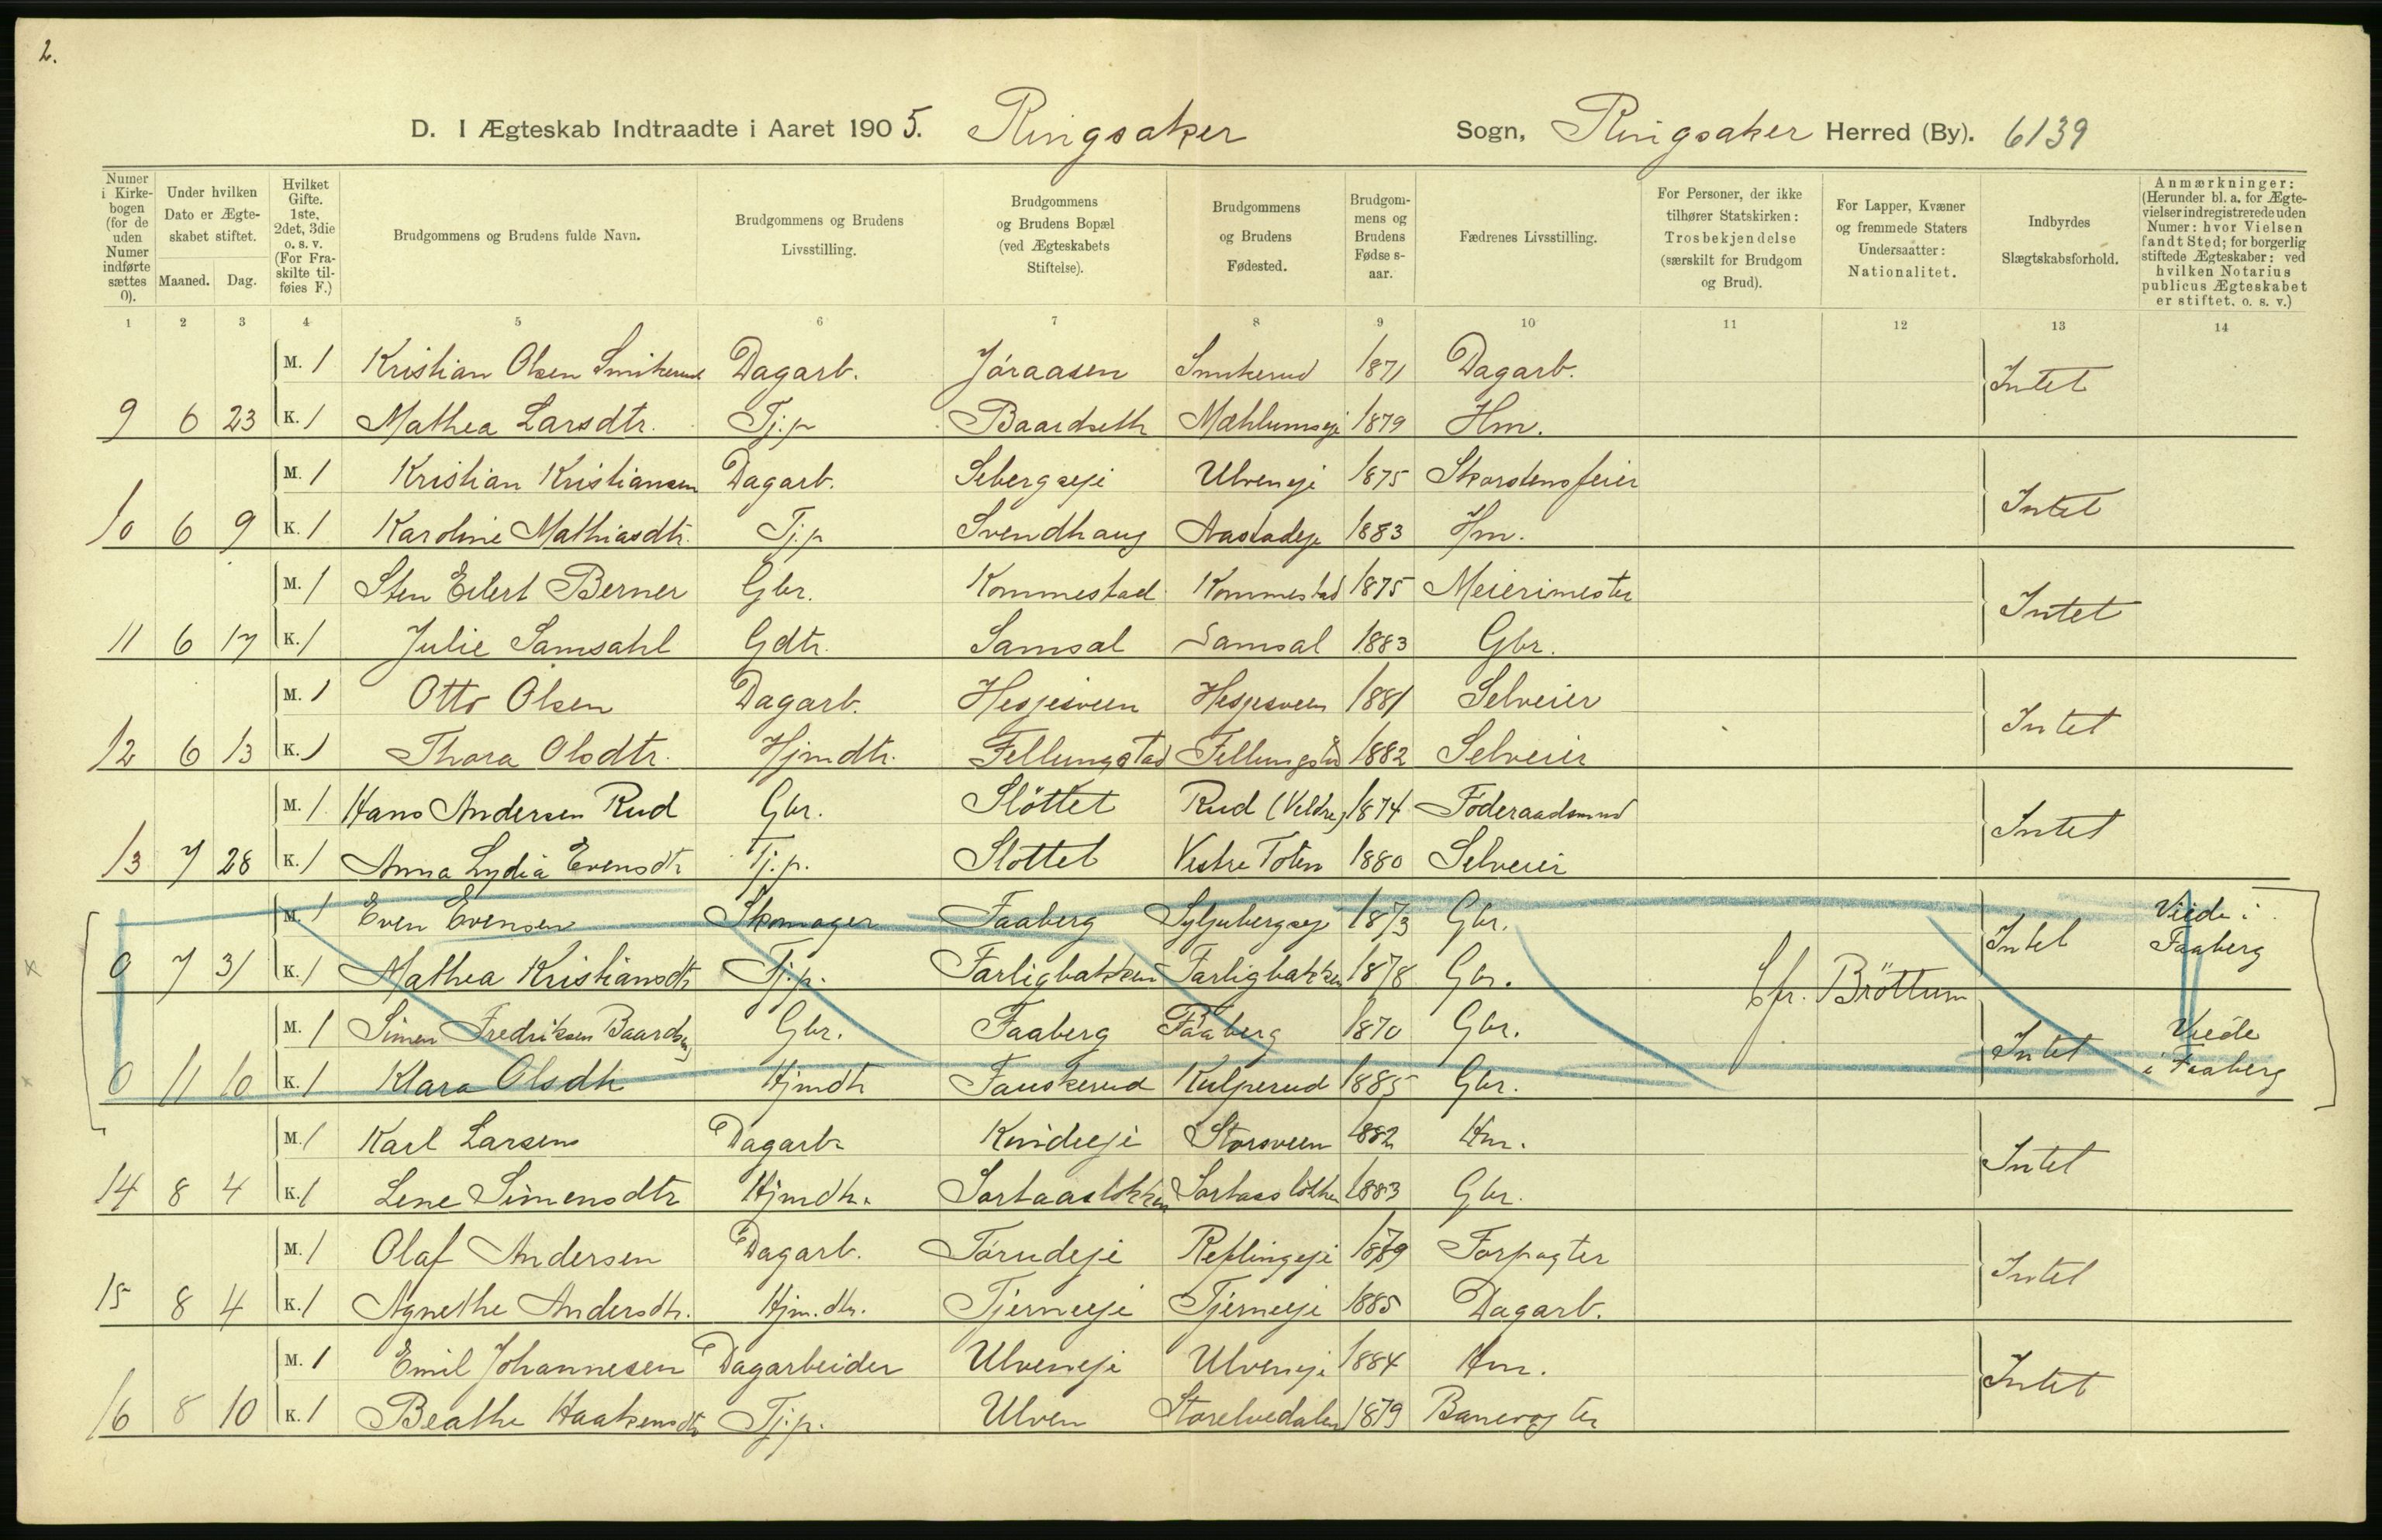 2.
D. I Ægteskab Indtraadte i Aaret 1905. Ringsaker Sogn, Ringsaker Herred (By). 6139
Numer i Kirkebogen (for de uden Numer indførte sættes 0).
Under hvilken Dato er Ægteskabet stiftet.
Maaned. Dag.
Hvilket Gifte. 1ste, 2det, 3die o. s. v. (For Fraskilte tilføies F.)
Brudgommens og Brudens fulde Navn.
Brudgommens og Brudens Livsstilling.
Brudgommens og Brudens Bopæl (ved Ægteskabets Stiftelse).
Brudgommens og Brudens Fødested.
Brudgommens og Brudens Fødse s-aar.
Fædrenes Livsstilling.
For Personer, der ikke tilhører Statskirken: Trosbekjendelse (særskilt for Brudgom og Brud).
For Lapper, Kvæner og fremmede Staters Undersaatter: Nationalitet.
Indbyrdes Slægtskabsforhold.
Anmærkninger: (Herunder bl. a. for Ægtevielser indregistrerede uden Numer: hvor Vielsen fandt Sted; for borgerlig stiftede Ægteskaber: ved hvilken Notarius publicus Ægteskabet er stiftet, o. s. v.)
1 2 3 4 5 6 7 8 9 10 11 12 13 14
M. 1 Kristian Olsen Smikerud Dagarb. Jøraasen Smikerud 1871 Dagarb. Intet
9 6 23 K. 1 Mathea Larsdtr. Tj.p Baardseth Mæhlumseje 1879 Hm.
M. 1 Kristian Kristiansen Dagarb. Sebergseje Ulveneje 1875 Skorstensfeier Intet
10 6 9 K. 1 Karoline Mathiasdtr. Tj.p Svendhaug Aastadeje 1883 Hm.
M. 1 Sten Eilert Berner Gbr. Kommestad Kommestad 1875 Meierimester Intet
11 6 17 K. 1 Julie Samsahl Gdtr. Samsal Samsal 1883 Gbr.
M. 1 Otto Olsen Dagarb. Hesjesveen Hesjesveen 1881 Selveier Intet
12 6 13 K. 1 Thora Olsdtr. Hjmdtr. Fellungstad Fellungstad 1882 Selveier
M. 1 Hans Andersen Rud Gbr. Slöttet Rud (Veldre) 1874 Föderaadsmand Intet
13 7 28 K. 1 Anna Lydia Evensdtr Tj.p. Slottet Vestre Toten 1880 Selveier
M. 1 Even Evensen Skomager Faaberg Syljubergseje 1873 Gbr. Intet Viede i Faaberg
0 7 31 K. 1 Mathea Kristiansdtr Tj.p. Farligbakken Farligbakken 1878 Gbr.
Cfr. Bröttum
M. 1 Simen Fredriksen Baardseng Gbr. Faaberg Faaberg 1870 Gbr. Intet Viede i Faaberg
0 11 10 K. 1 Klara Olsdtr Hjmdtr Fauskerud Kulperud 1885 Gbr.
M. 1 Karl Larsen Dagarb. Storsveen 1882 Hm. Intet
14 8 4 K. 1 Lene Simensdtr Hjmdtr. Sortaasløkken Sortaasløkken 1883 Gbr.
M. 1 Olaf Andersen Dagarb. Tørudeje 1879 Forpagter Intet
15 8 4 K. 1 Agnethe Andersdtr. Hjm.dtr. Tjerneeje Tjerneeje 1885 Dagarb.
M. 1 Emil Johannesen Dagarbeider Ulveneje Ulveneje 1884 Hm. Intet
16 8 10 K. 1 Beathe Haakensdtr Tj.p. Ulven Storelvedalen 1879 Banevogter